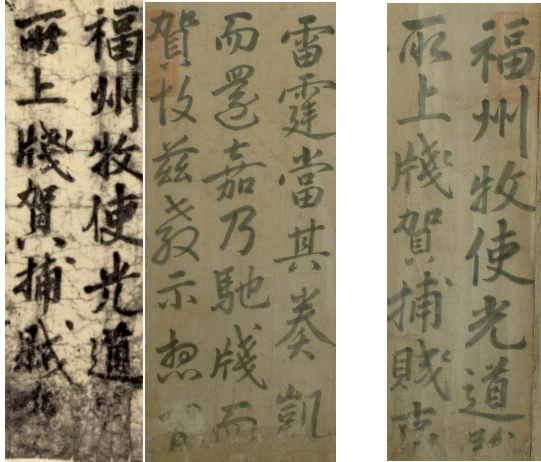 福州牧使光道
所上牋賀捕賊
雷霆當其奏凱
而還嘉乃馳牋而
賀故茲教示想
福州牧使光道
所上牋賀捕賊